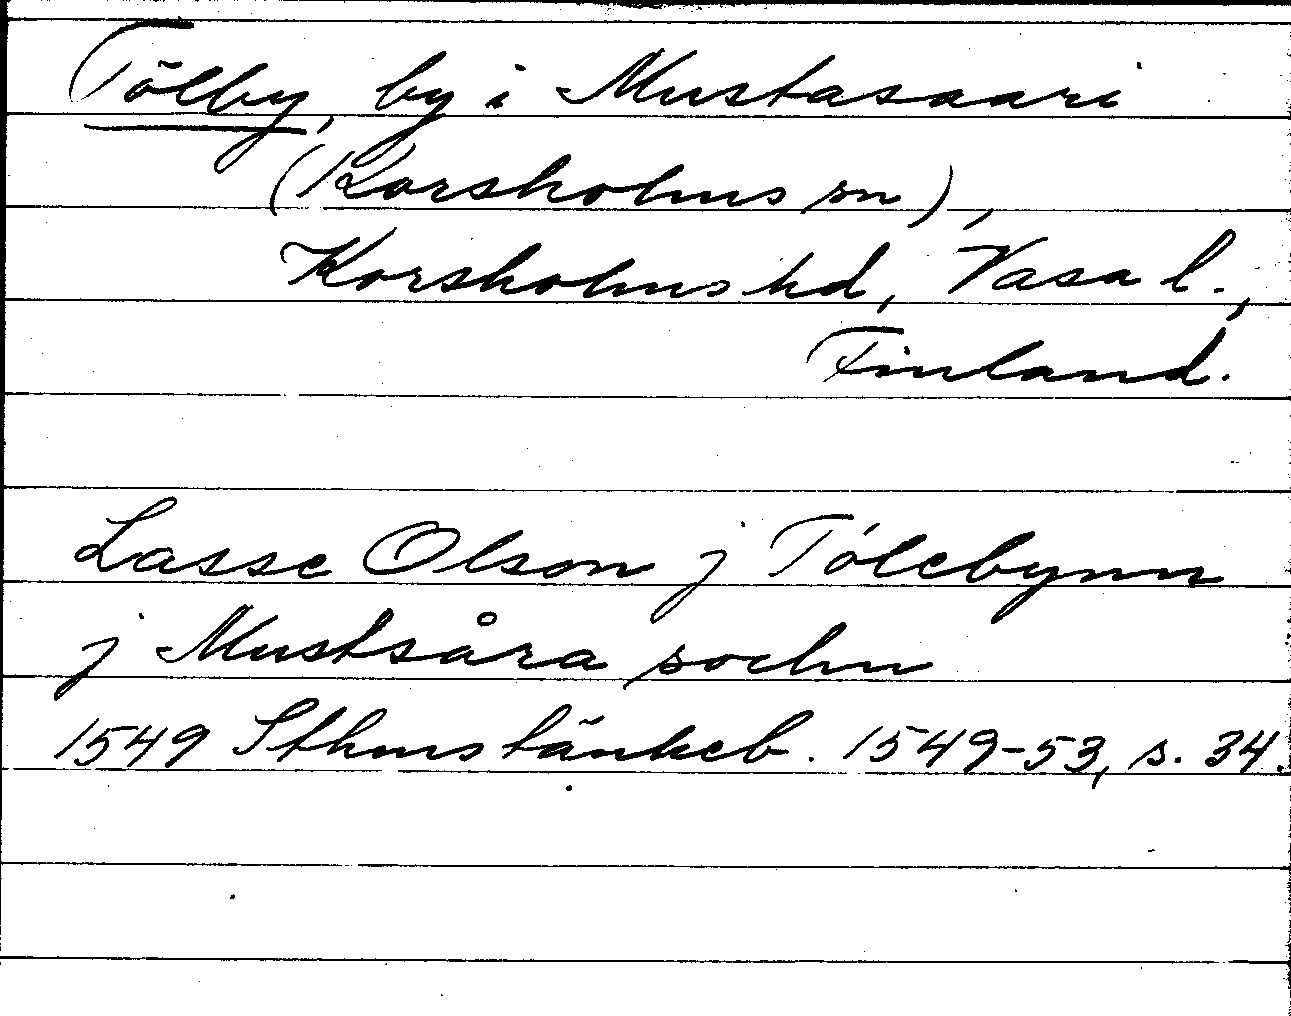 Tölby, by i Mustasaari
(Korsholms sn),
Korsholms hd, Vasa l.,
Finland.
Lasse Olson j Tólebynn
j Mustsåra sochn
1549 Sthms tänkeb. 1549-53, s. 34.